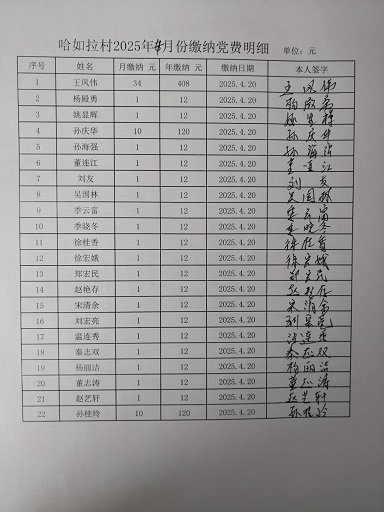 哈如拉村2025年4月份缴纳党费明细 单位：元
序号 姓名 月缴纳 元 年缴纳 元 缴纳日期 本人签字
1 王凤伟 34 408 2025.4.20 王凤伟
2 杨殿勇 1 12 2025.4.20
3 姚显辉 1 12 2025.4.20
4 孙庆华 10 120 2025.4.20 孙庆华
5 孙海强 1 12 2025.4.20 孙海强
6 董连江 1 12 2025.4.20 董连江
7 刘友 1 12 2025.4.20 刘友
8 吴国林 1 12 2025.4.20 吴国林
9 季云富 1 12 2025.4.20 季云富
10 季晓冬 1 12 2025.4.20 季晓冬
11 徐桂香 1 12 2025.4.20 徐桂香
12 徐宏娥 1 12 2025.4.20 徐宏娥
13 郑宏民 1 12 2025.4.20
14 赵艳存 1 12 2025.4.20
15 宋清余 1 12 2025.4.20 宋清余
16 刘宏亮 1 12 2025.4.20 刘宏亮
17 温连秀 1 12 2025.4.20
18 秦志双 1 12 2025.4.20 秦志双
19 杨丽洁 1 12 2025.4.20 杨丽洁
20 董志涛 1 12 2025.4.20 董志涛
21 赵艺轩 1 12 2025.4.20 赵艺轩
22 孙桂玲 10 120 2025.4.20 孙桂玲